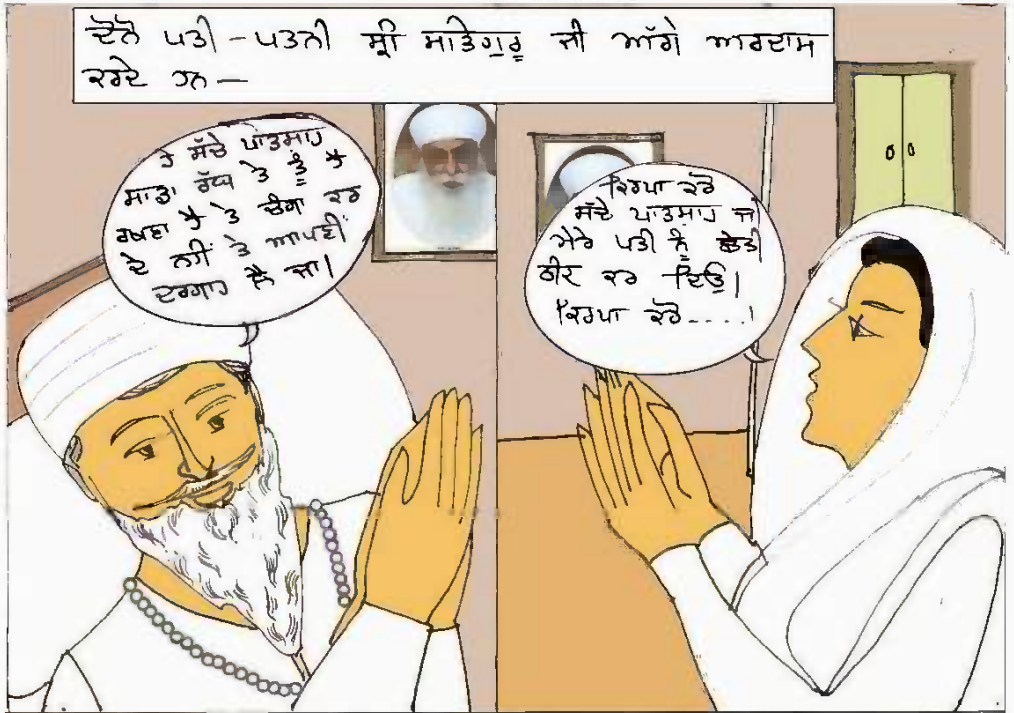 ਦੋਨੋ ਪਤੀ-ਪਤਨੀ ਸ੍ਰੀ ਸਤਿਗੁਰੂ ਜੀ ਅੱਗੇ ਅਰਦਾਸ
ਕਰਦੇ ਹਨ —
ਹੇ ਸੱਚੇ ਪਾਤਸਾਹ
ਸਾਡਾ ਰੱਬ ਤੇ ਤੂੰ ਹੈ
ਰਖਣਾ ਹੈ ਤੇ ਚੰਗਾ ਕਰ
ਦੇ ਨਹੀਂ ਤੇ ਆਪਣੀ
ਦਰਗਾਹ ਲੈ ਜਾ।
ਕਿਰਪਾ ਕਰੋ
ਸੱਚੇ ਪਾਤਸਾਹ ਜੀ
ਮੇਰੇ ਪਤੀ ਨੂੰ ਛੇਤੀ
ਠੀਕ ਕਰ ਦਿਓ।
ਕਿਰਪਾ ਕਰੋ.....!